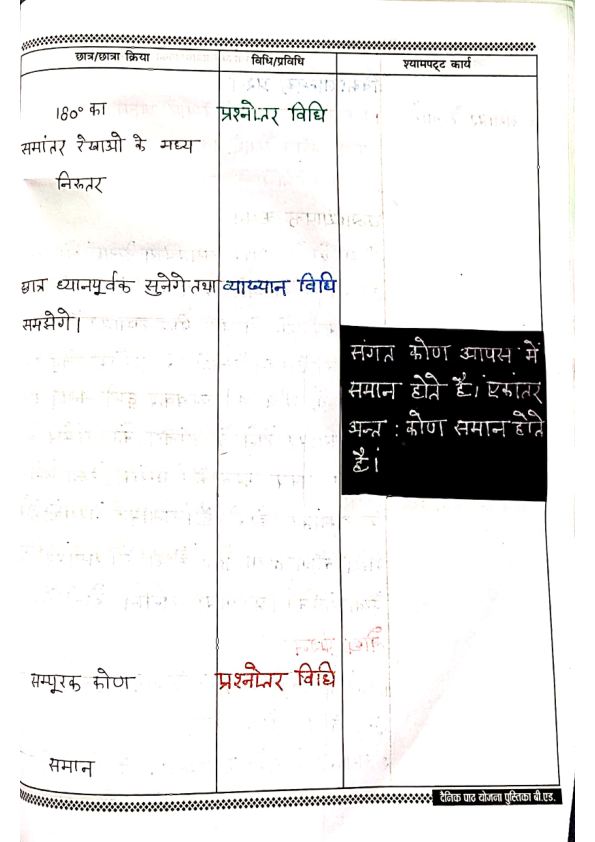 छात्र/छात्रा क्रिया विधि/प्रविधि श्यामपट्ट कार्य
180° का प्रश्नोतर विधि
समांतर रेखाओ के मध्य
निरुतर
छात्र ध्यानपूर्वक सुनेगे तथा व्याख्यान विधि
समझेगे।
संगत कोण आपस में
समान होते है। एकांतर
अन्त : कोण समान होते
है।
सम्पूरक कोण प्रश्नोतर विधि
समान
दैनिक पाठ योजना पुस्तिका बी.एड.